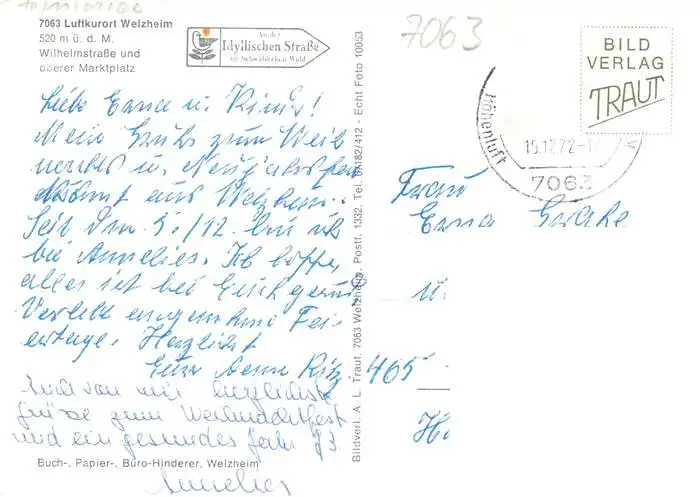 7063 Luftkurort Welzheim
520 m ü. d. M.
Wilhelmstraße und
oberer Marktplatz
An der
Idyllischen Straße
im Schwäbischen Wald
7063
BILD
VERLAG
TRAUT
Höhenluft
15.12.72
7063
Liebe Erna u. Kinder!
Mein Gruß zum Weih
nachts u. Neujahrsfest
kommt aus Welzheim.
Seit dem 5./12. bin ich
bei Annelies. Ich hoffe,
alles ist bei Euch gesund
Verlebt angenehme Fei-
ertage. Herzlichst
Eure Aenne
Auch von mir herzlichste
Grüße zum Weihnachtsfest
und ein gesundes Jahr 73
Annelies
Frau
Erna
465
Buch-, Papier-, Büro-Hinderer, Welzheim
Bildverl. A. L. Traut, 7063 Welzheim, Postf. 1332, Tel. 07182/412 - Echt Foto 10053